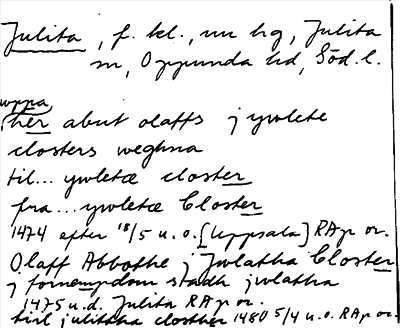 Julita, f. kl., nu hg, Julita
sn, Oppunda hd, Söd. l.
uppa,
her abut olaffs j ywlete
closters weghna
til... ywletæ closter
fra... ywletæ Closter
1474 efter 18/5 u.o. [Uppsala] RAp or.
Olaff Abbothe j Jwlatha Closter
j fornempdom stadh jwlatha
1475 u.d. Julita RAp or.
tiil julittha closther 1480 5/4 u.o. RAp or.